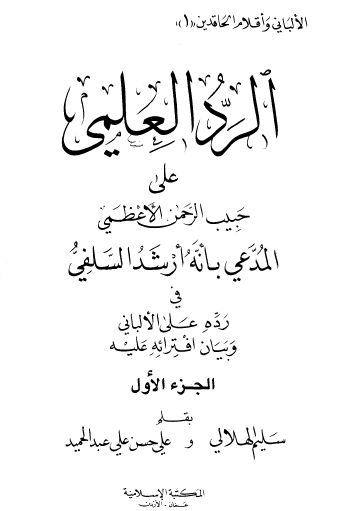 الألباني وأقلام الحاقدين «١»
الرد العلمي
على
حبيب الرحمن الأعظمي
المدعي بأنه أرشد السلفي
في
رده على الألباني
وبيان افترائه عليه
الجزء الأول
بقلم
سليم الهلالي و علي حسن علي عبد الحميد
المكتبة الإسلامية
عمان - الأردن